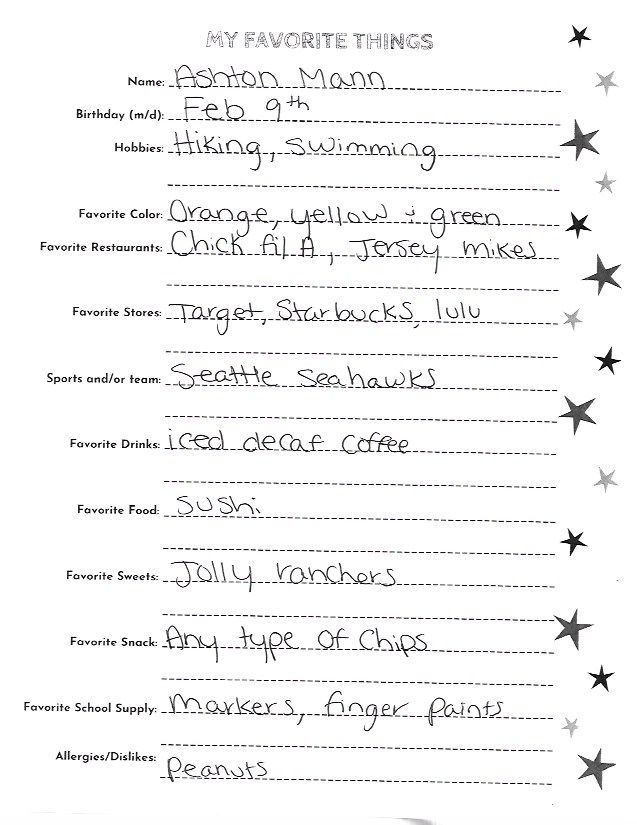 MY FAVORITE THINGS
Name: Ashton Mann
Birthday (m/d): Feb 9th
Hobbies: Hiking, swimming
Favorite Color: Orange, yellow & green
Favorite Restaurants: Chick fil A, Jersey mikes
Favorite Stores: Target, Starbucks, lulu
Sports and/or team: Seattle seahawks
Favorite Drinks: iced decaf coffee
Favorite Food: sushi
Favorite Sweets: Jolly ranchers
Favorite Snack: Any type of chips
Favorite School Supply: markers, finger paints
Allergies/Dislikes: peanuts